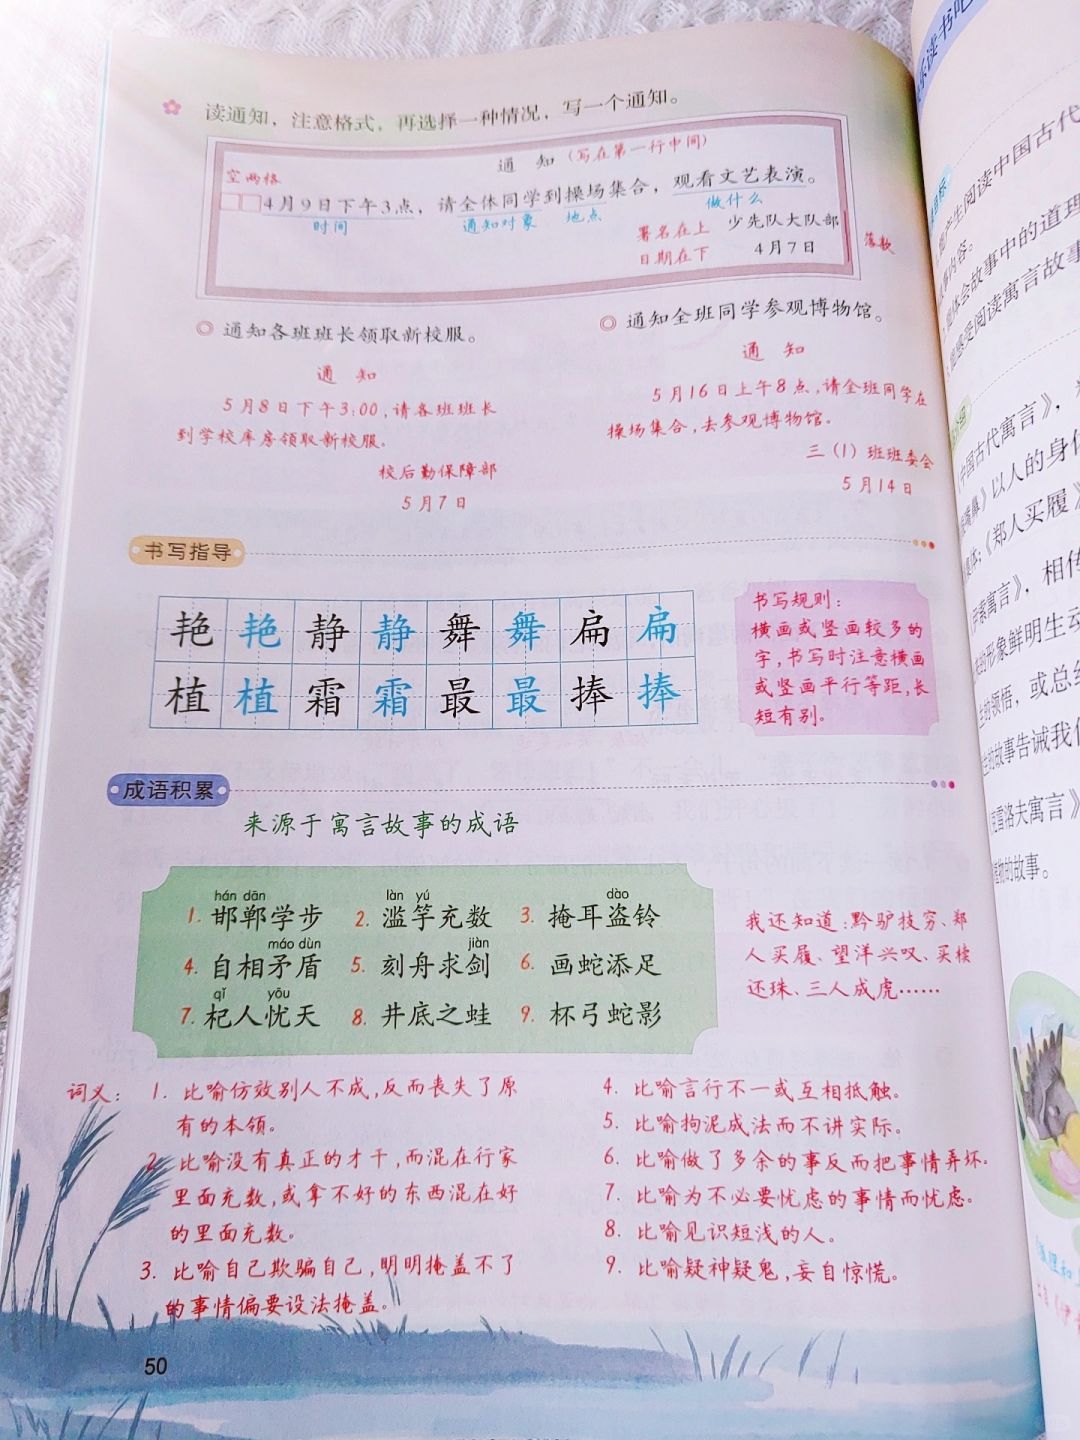 读通知，注意格式，再选择一种情况，写一个通知。
通 知（写在第一行中间）
空两格
4月9日下午3点，请全体同学到操场集合，观看文艺表演。
时间 通知对象 地点 做什么
署名在上 少先队大队部
日期在下 4月7日
落款
◎ 通知各班班长领取新校服。
通 知
5月8日下午3:00,请各班班长
到学校库房领取新校服。
校后勤保障部
5月7日
◎ 通知全班同学参观博物馆。
通 知
5月16日上午8点,请全班同学在
操场集合,去参观博物馆。
三（1）班班委会
5月14日
书写指导
艳 艳 静 静 舞 舞 扁 扁
植 植 霜 霜 最 最 捧 捧
书写规则:
横画或竖画较多的
字,书写时注意横画
或竖画平行等距,长
短有别。
成语积累
来源于寓言故事的成语
hán dān làn yú dào
1. 邯郸学步 2. 滥竽充数 3. 掩耳盗铃
máo dùn jiàn
4. 自相矛盾 5. 刻舟求剑 6. 画蛇添足
qǐ yōu
7. 杞人忧天 8. 井底之蛙 9. 杯弓蛇影
我还知道:黔驴技穷、郑
人买履、望洋兴叹、买椟
还珠、三人成虎……
词义: 1. 比喻仿效别人不成,反而丧失了原
有的本领。
2. 比喻没有真正的才干,而混在行家
里面充数,或拿不好的东西混在好
的里面充数。
3. 比喻自己欺骗自己,明明掩盖不了
的事情偏要设法掩盖。
4. 比喻言行不一或互相抵触。
5. 比喻拘泥成法而不讲实际。
6. 比喻做了多余的事反而把事情弄坏。
7. 比喻为不必要忧虑的事情而忧虑。
8. 比喻见识短浅的人。
9. 比喻疑神疑鬼,妄自惊慌。
50
读书吧
产生阅读中国古代
内容。
体会故事中的道理
感受阅读寓言故事
中国古代寓言》，
》以人的身体
《郑人买履》
寓言》，相传
的形象鲜明生动
的领悟，或总结
的故事告诫我们
克雷洛夫寓言》
植物的故事。